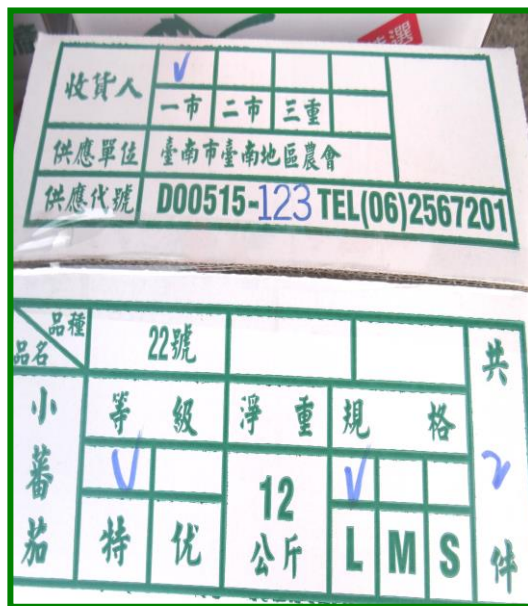 選
✓
收貨人
一市 二市 三重
供應單位 臺南市臺南地區農會
供應代號 D00515-123 TEL(06)2567201
品種 22號 共
品名
小蕃茄 等級 淨重 規格
✓ ✓ 2
特 优 12公斤 L M S 件